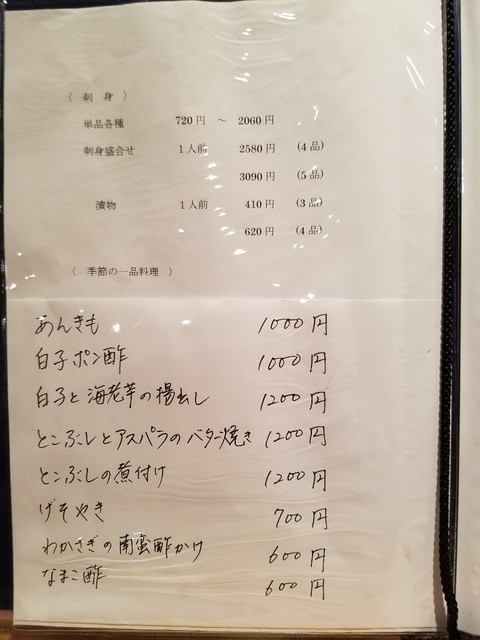 〈 刺 身 〉
単品各種 720円 ～ 2060円
刺身盛合せ 1人前 2580円 (4品)
3090円 (5品)
漬物 1人前 410円 (3品)
620円 (4品)
〈 季節の一品料理 〉
あんきも 1000円
白子ポン酢 1000円
白子と海老芋の揚出し 1200円
とこぶしとアスパラのバター焼き 1200円
とこぶしの煮付け 1200円
げそやき 700円
わかさぎの南蛮酢かけ 600円
なまこ酢 600円